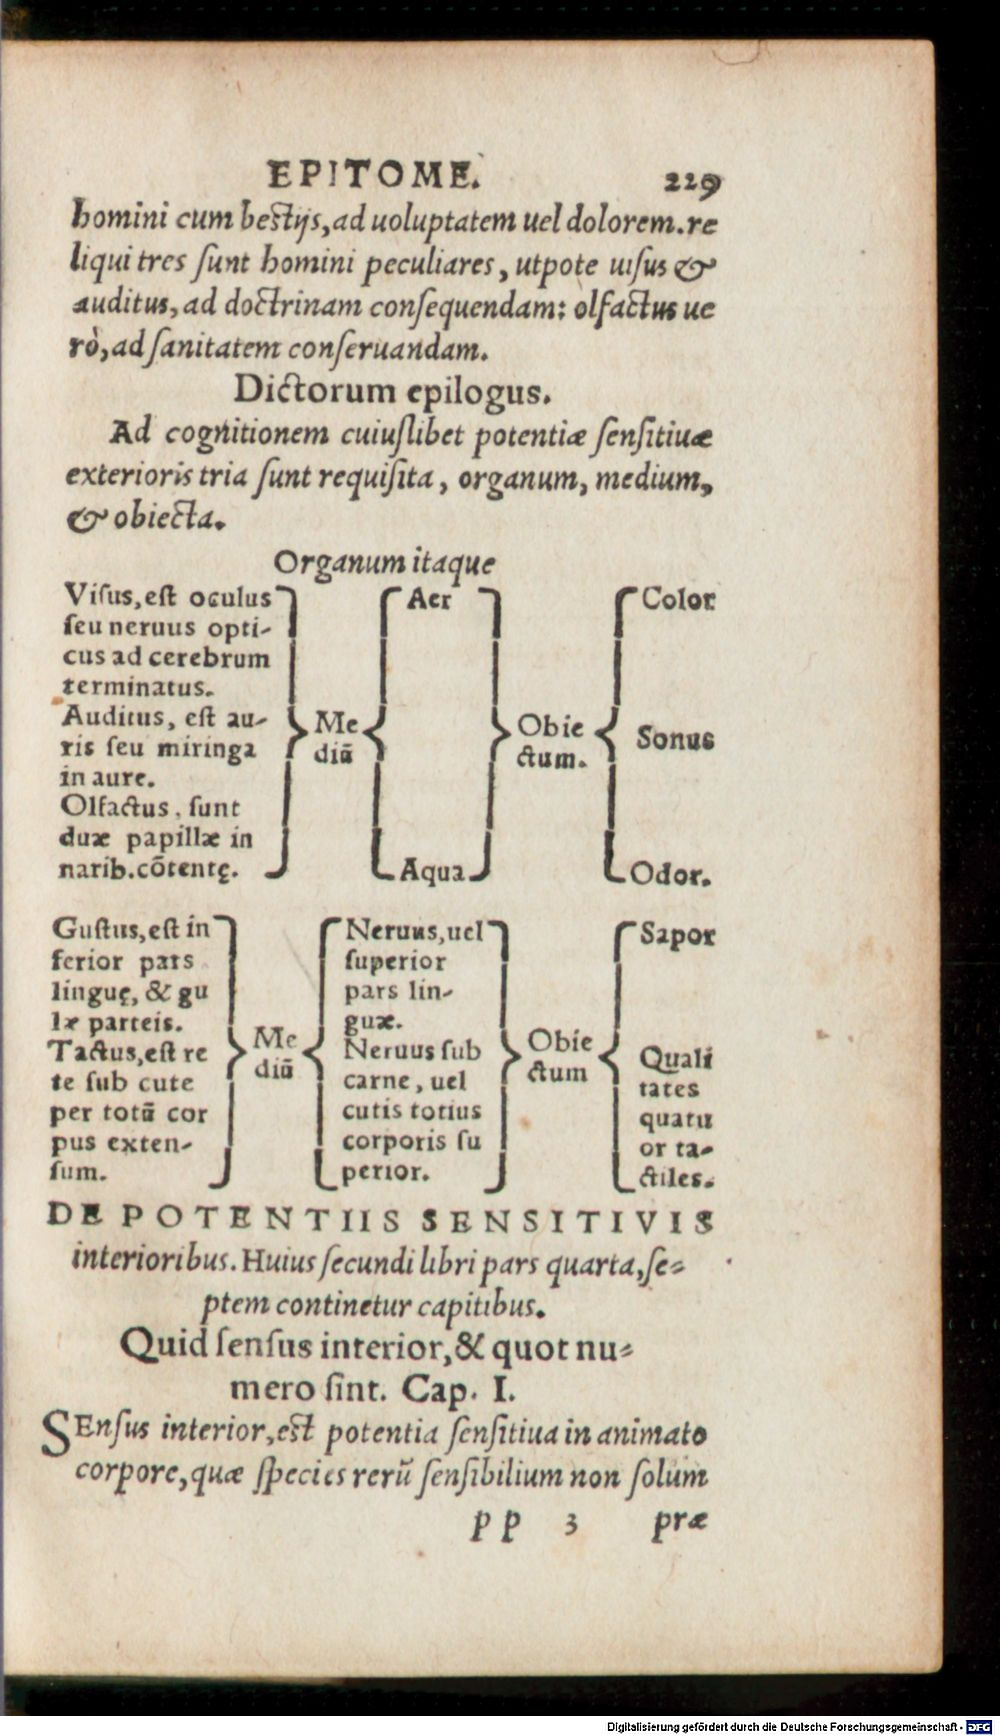 EPITOME. 229
homini cum bestijs, ad uoluptatem uel dolorem. re
liqui tres ſunt homini peculiares, utpote uiſus &
auditus, ad doctrinam conſequendam: olfactus ue
rò, ad ſanitatem conſeruandam.
Dictorum epilogus.
Ad cognitionem cuiuſlibet potentiæ ſenſitiuæ
exterioris tria ſunt requiſita, organum, medium,
& obiecta.
Organum itaque
Viſus, eſt oculus
ſeu neruus opti-
cus ad cerebrum
terminatus.
Auditus, eſt au-
ris ſeu miringa
in aure.
Olfactus, ſunt
duæ papillæ in
narib. cõtentę.
Me
diũ
Aer
Aqua
Obie
ctum.
Color
Sonus
Odor.
Guſtus, eſt in
ferior pars
linguę, & gu
læ parteis.
Tactus, eſt re
te ſub cute
per totũ cor
pus exten-
ſum.
Me
diũ
Neruus, uel
ſuperior
pars lin-
guæ.
Neruus ſub
carne, uel
cutis totius
corporis ſu
perior.
Obie
ctum
Sapor
Quali
tates
quatu
or ta-
ctiles.
DE POTENTIIS SENSITIVIS
interioribus. Huius ſecundi libri pars quarta, ſe-
ptem continetur capitibus.
Quid ſenſus interior, & quot nu-
mero ſint. Cap. I.
SEnſus interior, eſt potentia ſenſitiua in animato
corpore, quæ ſpecies rerũ ſenſibilium non ſolùm
pp 3 præ
Digitalisierung gefördert durch die Deutsche Forschungsgemeinschaft - DFG